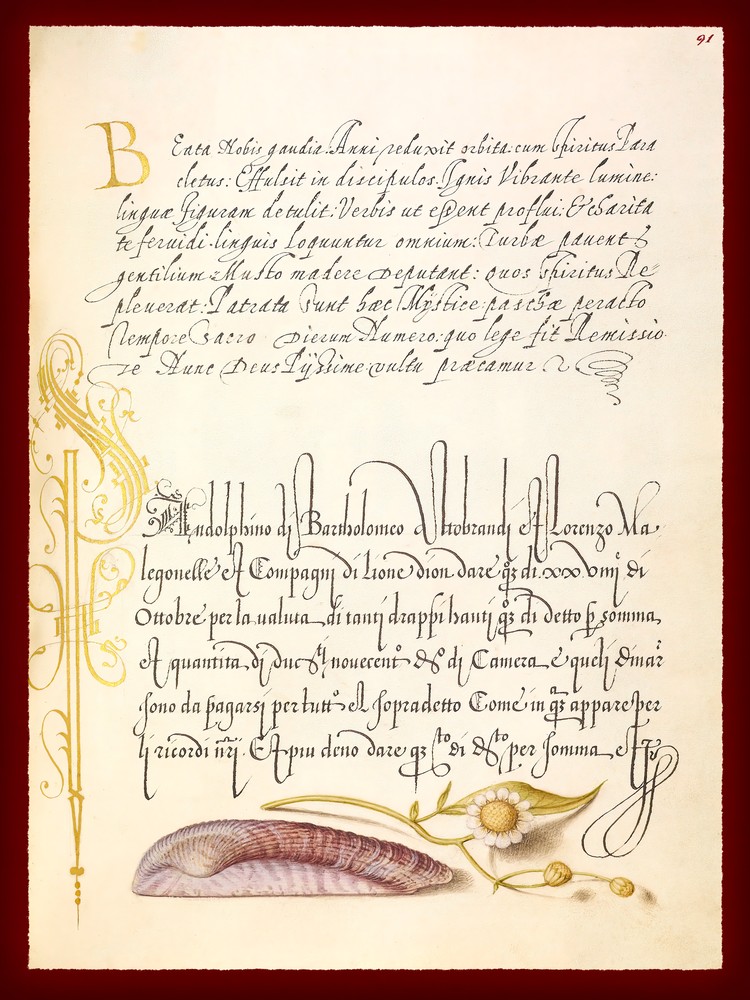 91
BEata Nobis gaudia: Anni reduxit orbita: cum Spiritus Para
cletus: Effulsit in discipulos. Ignis Vibrante lumine:
linguæ figuram detulit: Verbis ut essent proflui: & charita
te fervidi: linguis loquuntur omnium: Turbæ pavent &
gentilium Musto madere Deputant: quos Spiritus Re
pleverat: Patrata Sunt hæc Mystice: paschæ peracto
Tempore Sacro Dierum Numero: quo lege fit Remissio
Nunc Deus Pijssime vultu præcamur
Andolphino di Bartholomeo et Lorenzo Ma
legonelle et Compagni di Lione dion dare di xxviiij di
Ottobre per la valuta di tanti drappi hauti di detto somma
et quantita di novecento di Camera e queli dinar
sono da pagarsi per tutto el sopradetto Come in appare per
li ricordi nri. Et piu deno dare di per somma et